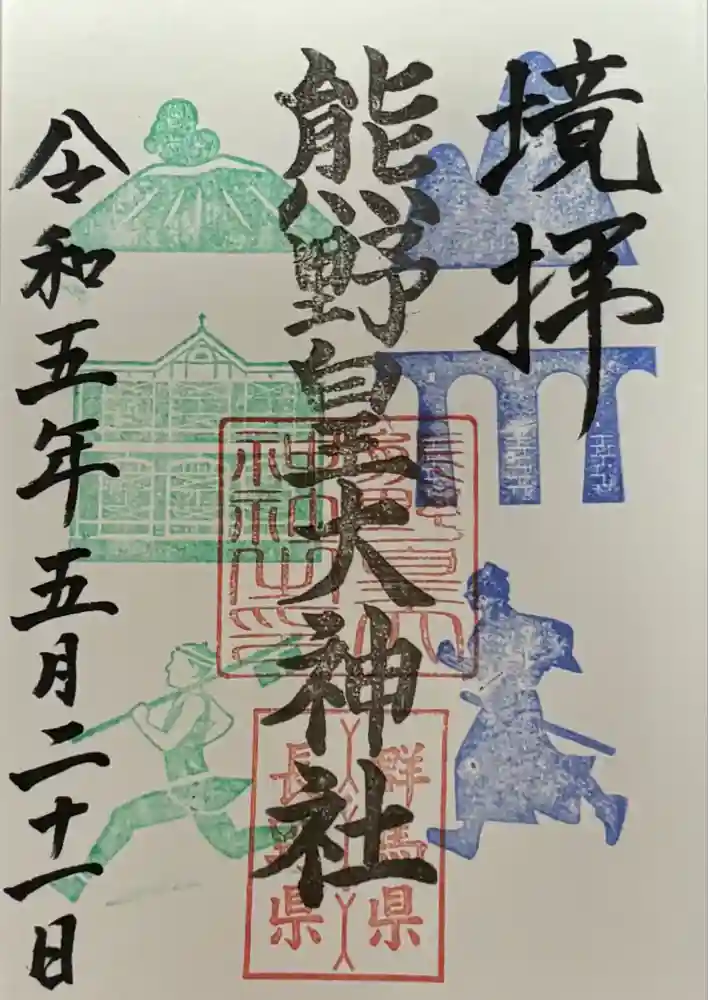 境拝
熊野皇大神社
群馬県
長野県
令和五年五月二十一日